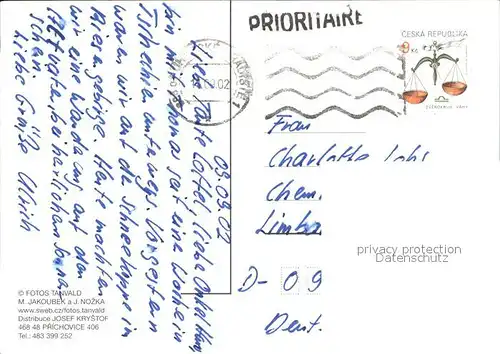 PRIORITAIRE
ČESKÁ REPUBLIKA
9 Kč
ZVĚROKRUH VÁHY
.02
03.09.02
Liebe Tante Lottel, liebe
bin mit seit einer Woche in
Tschechien unterwegs. Vorgestern
waren wir auf der Schneekoppe im
Riesengebirge. Heute machten
wir eine Wanderung auf den
bei herrlichem Sonnen-
schein.
Liebe Grüße Ulrich
Frau
Charlotte
Chem.
Limba
D-09
Deut.
privacy protection
Datenschutz
© FOTOS TANVALD
M. JAKOUBEK a J. NOŽKA
www.sweb.cz/fotos.tanvald
Distribuce JOSEF KRYŠTOF
468 48 PŘÍCHOVICE 406
Tel.: 483 399 252